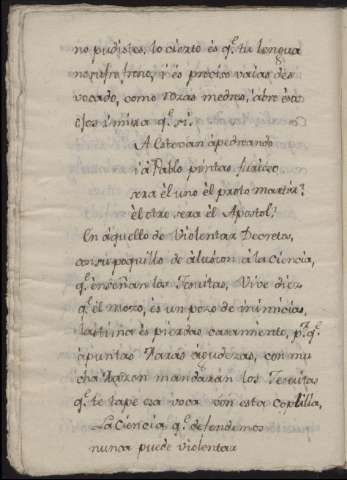 no pudistes, lo cierto és q.^e tu lengua
no sufre freno, i és preciso vaias des
vocado, como Rozas medres, i abre esos
ojos i mira q.^e si.
A Estevan apedreando
i à Pablo pintas furioso
sera él uno él proto martir?
él otro sera él Apostol?
En áquello de Violentar Decretos,
con su poquillo de alusion à la Ciencia,
q.^e enseñan los Jesuitas, Vive diez
q.^e él mozo, és un pozo de ininicias,
lastima és pierdas casamiente, p.^r q.^e
apuntas Raras agudezas, con mu
cha Razon mandarán los Jesuitas
q.^e te tape esa voca con esta coplilla,
La Ciencia q.^e defendemos
nunca puede violentar